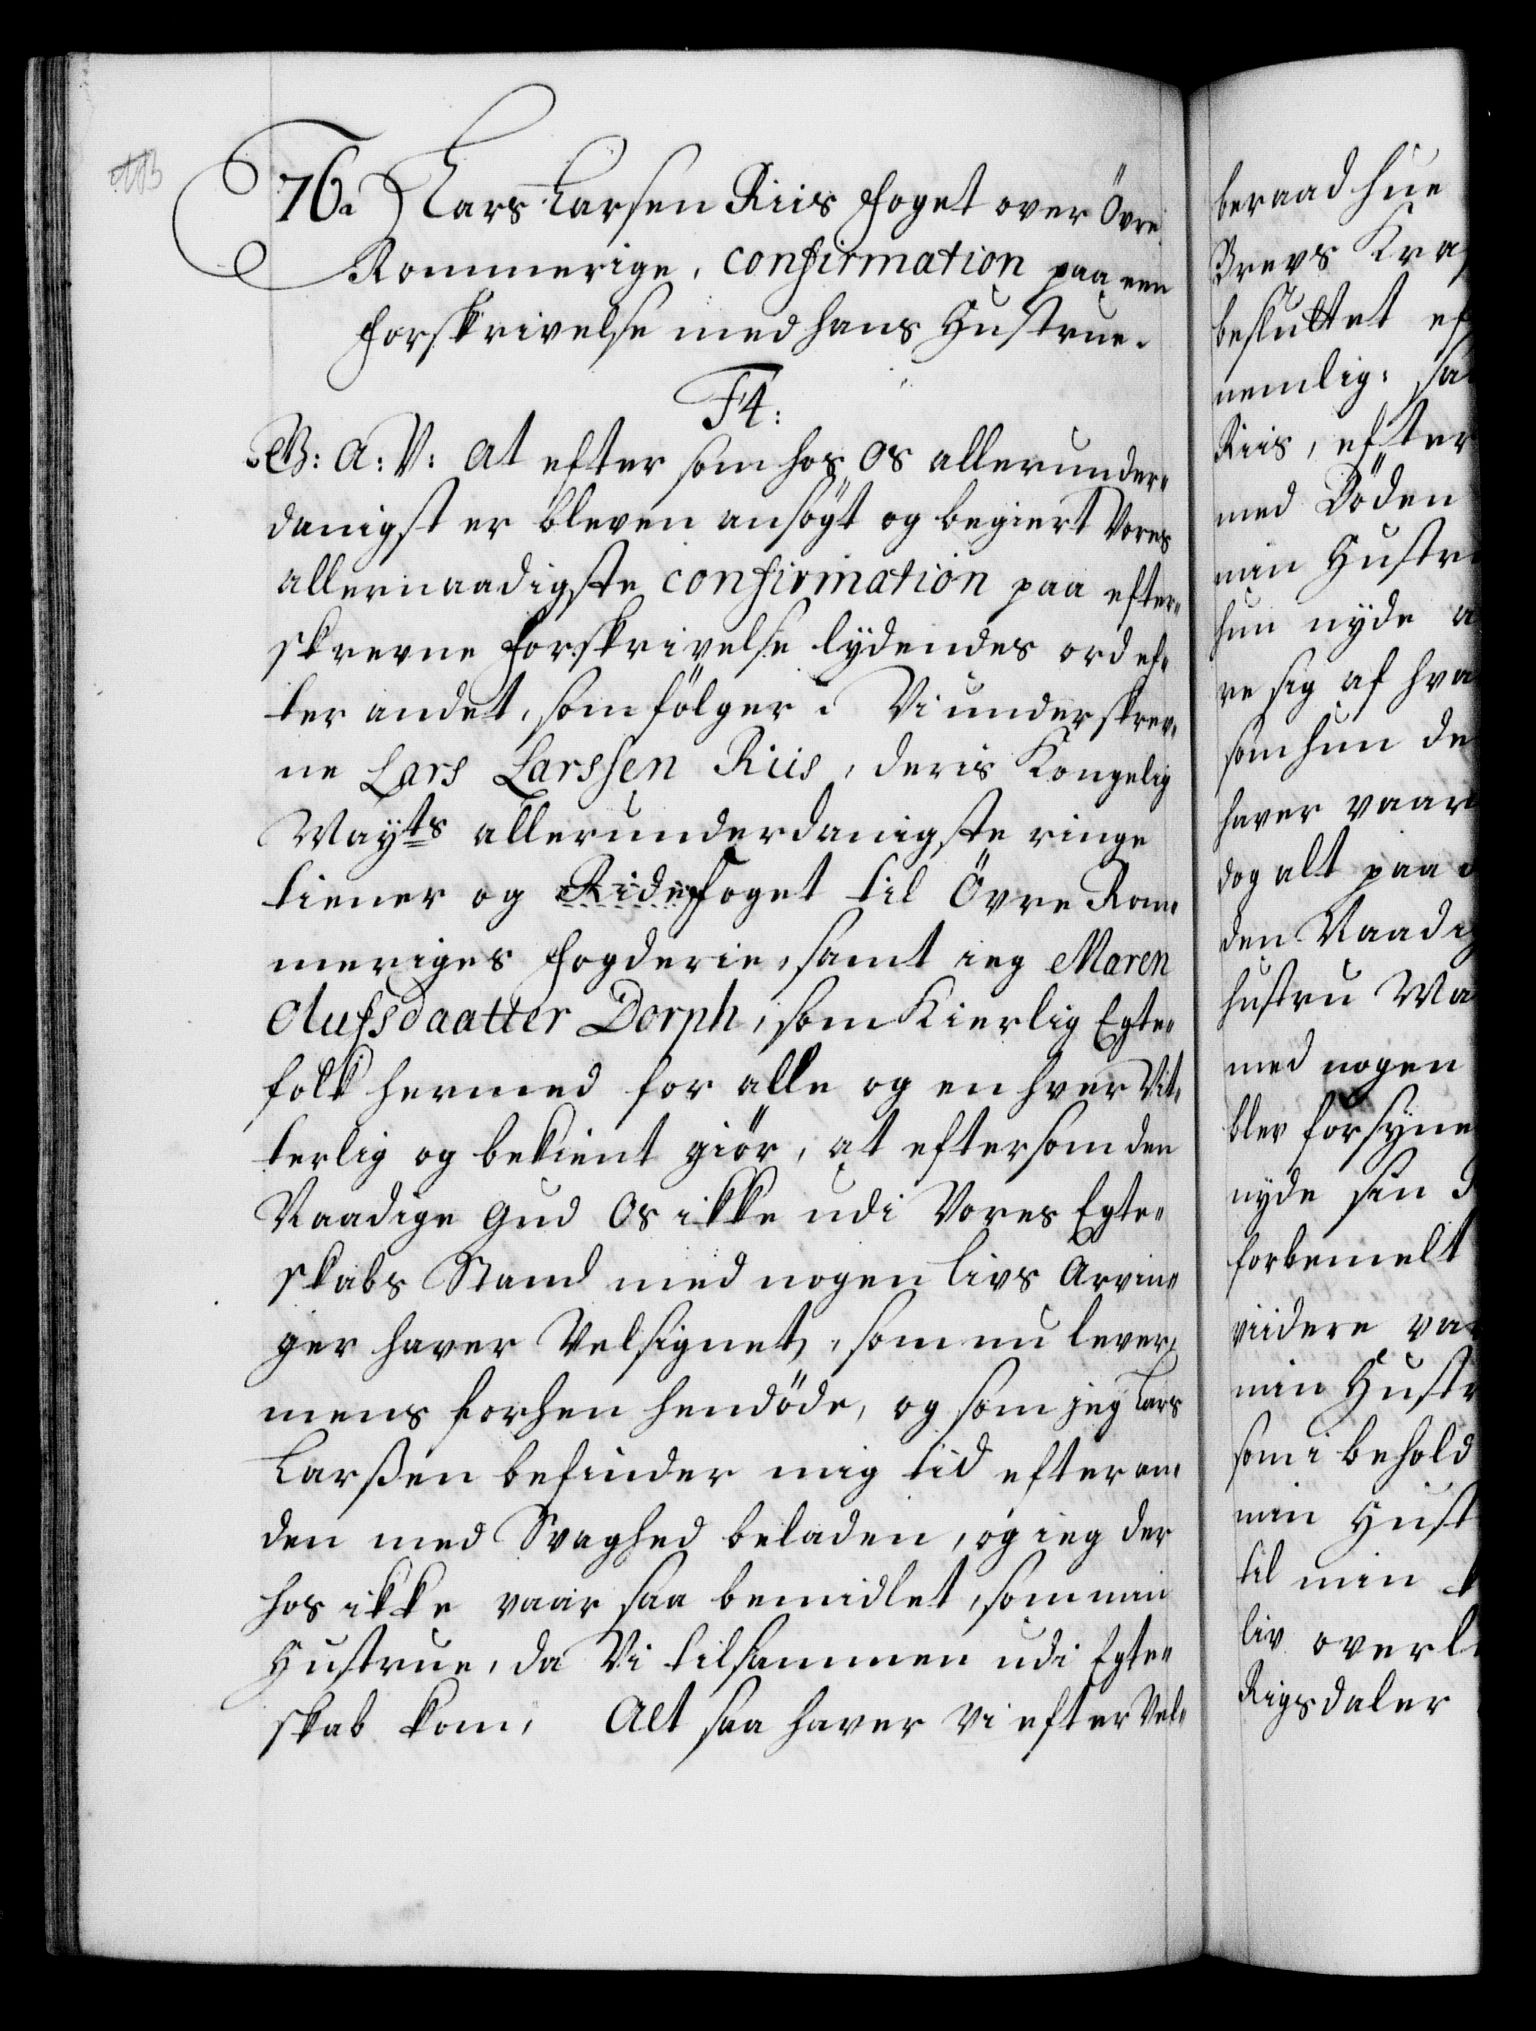 NB
76. Lars Larsen Riis Foget over Övre
Rommerige, Confirmation paa een
Forskrivelse med hans Hustrue.
F4:
G: A: V: At efter som hos Os allerunder-
danigst er bleven ansögt og begiert Vores
allernaadigste Confirmation paa efter-
skrevne Forskrivelse lÿdendes ord ef-
ter andet, som fölger. Vi underskrev-
ne Lars Larssen Riis, deris Kongelig
Mayts allerunderdanigste ringe
tiener og Ridefoget til Övre Rom-
meriges Fogderie, samt ieg Maren
Olufsdaatter Dorph, som Kierlig Egte-
folk hermed for alle og en hver Vit-
terlig og bekient giör, at eftersom den
Naadige Gud Os ikke udi Vores Egte-
skabs Stand med nogen Livs Arvin-
ger haver Velsignet, som nu lever,
mens forhen hendöde, og som jeg Lars
Larßen befinder mig tid efter an-
den med Svaghed beladen, og ieg der
hos ikke vaar saa bemidlet, som min
Hustrue, da Vi tilsammen udi Egte-
skab kom, Alt saa haver Vi efter Vel-
beraad hue
Brevs Kra
besluttet ef
nemlig: sa
Riis, efter
med Döden
min Hustru
hun nÿde a
re sig af hva
som hun de
haver vaar
dog alt paa
den Naadig
Hustru Ma
med nogen
blev forsÿne
nÿde sin
forbemelt
viidere va
min Hustr
som i behold
min Hust
til min
liv overl
Rigsdaler